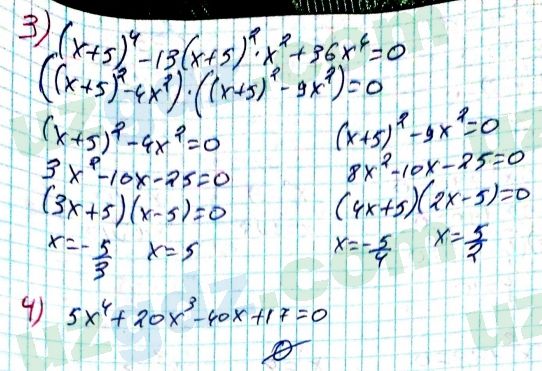 3) (x+5)⁴-13(x+5)²·x²+36x⁴=0
((x+5)²-4x²)·((x+5)²-9x²)=0
(x+5)²-4x²=0
3x²-10x-25=0
(3x+5)(x-5)=0
x=-5/3 x=5
(x+5)²-9x²=0
8x²-10x-25=0
(4x+5)(2x-5)=0
x=-5/4 x=5/2
4) 5x⁴+20x³-40x+17=0
∅
uzgdz.com